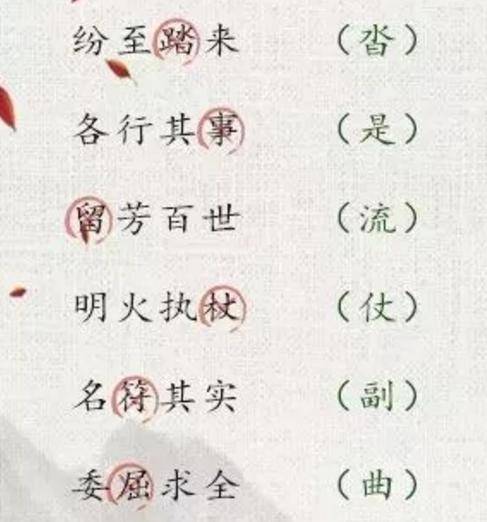 纷至踏来 （沓）
各行其事 （是）
留芳百世 （流）
明火执杖 （仗）
名符其实 （副）
委屈求全 （曲）